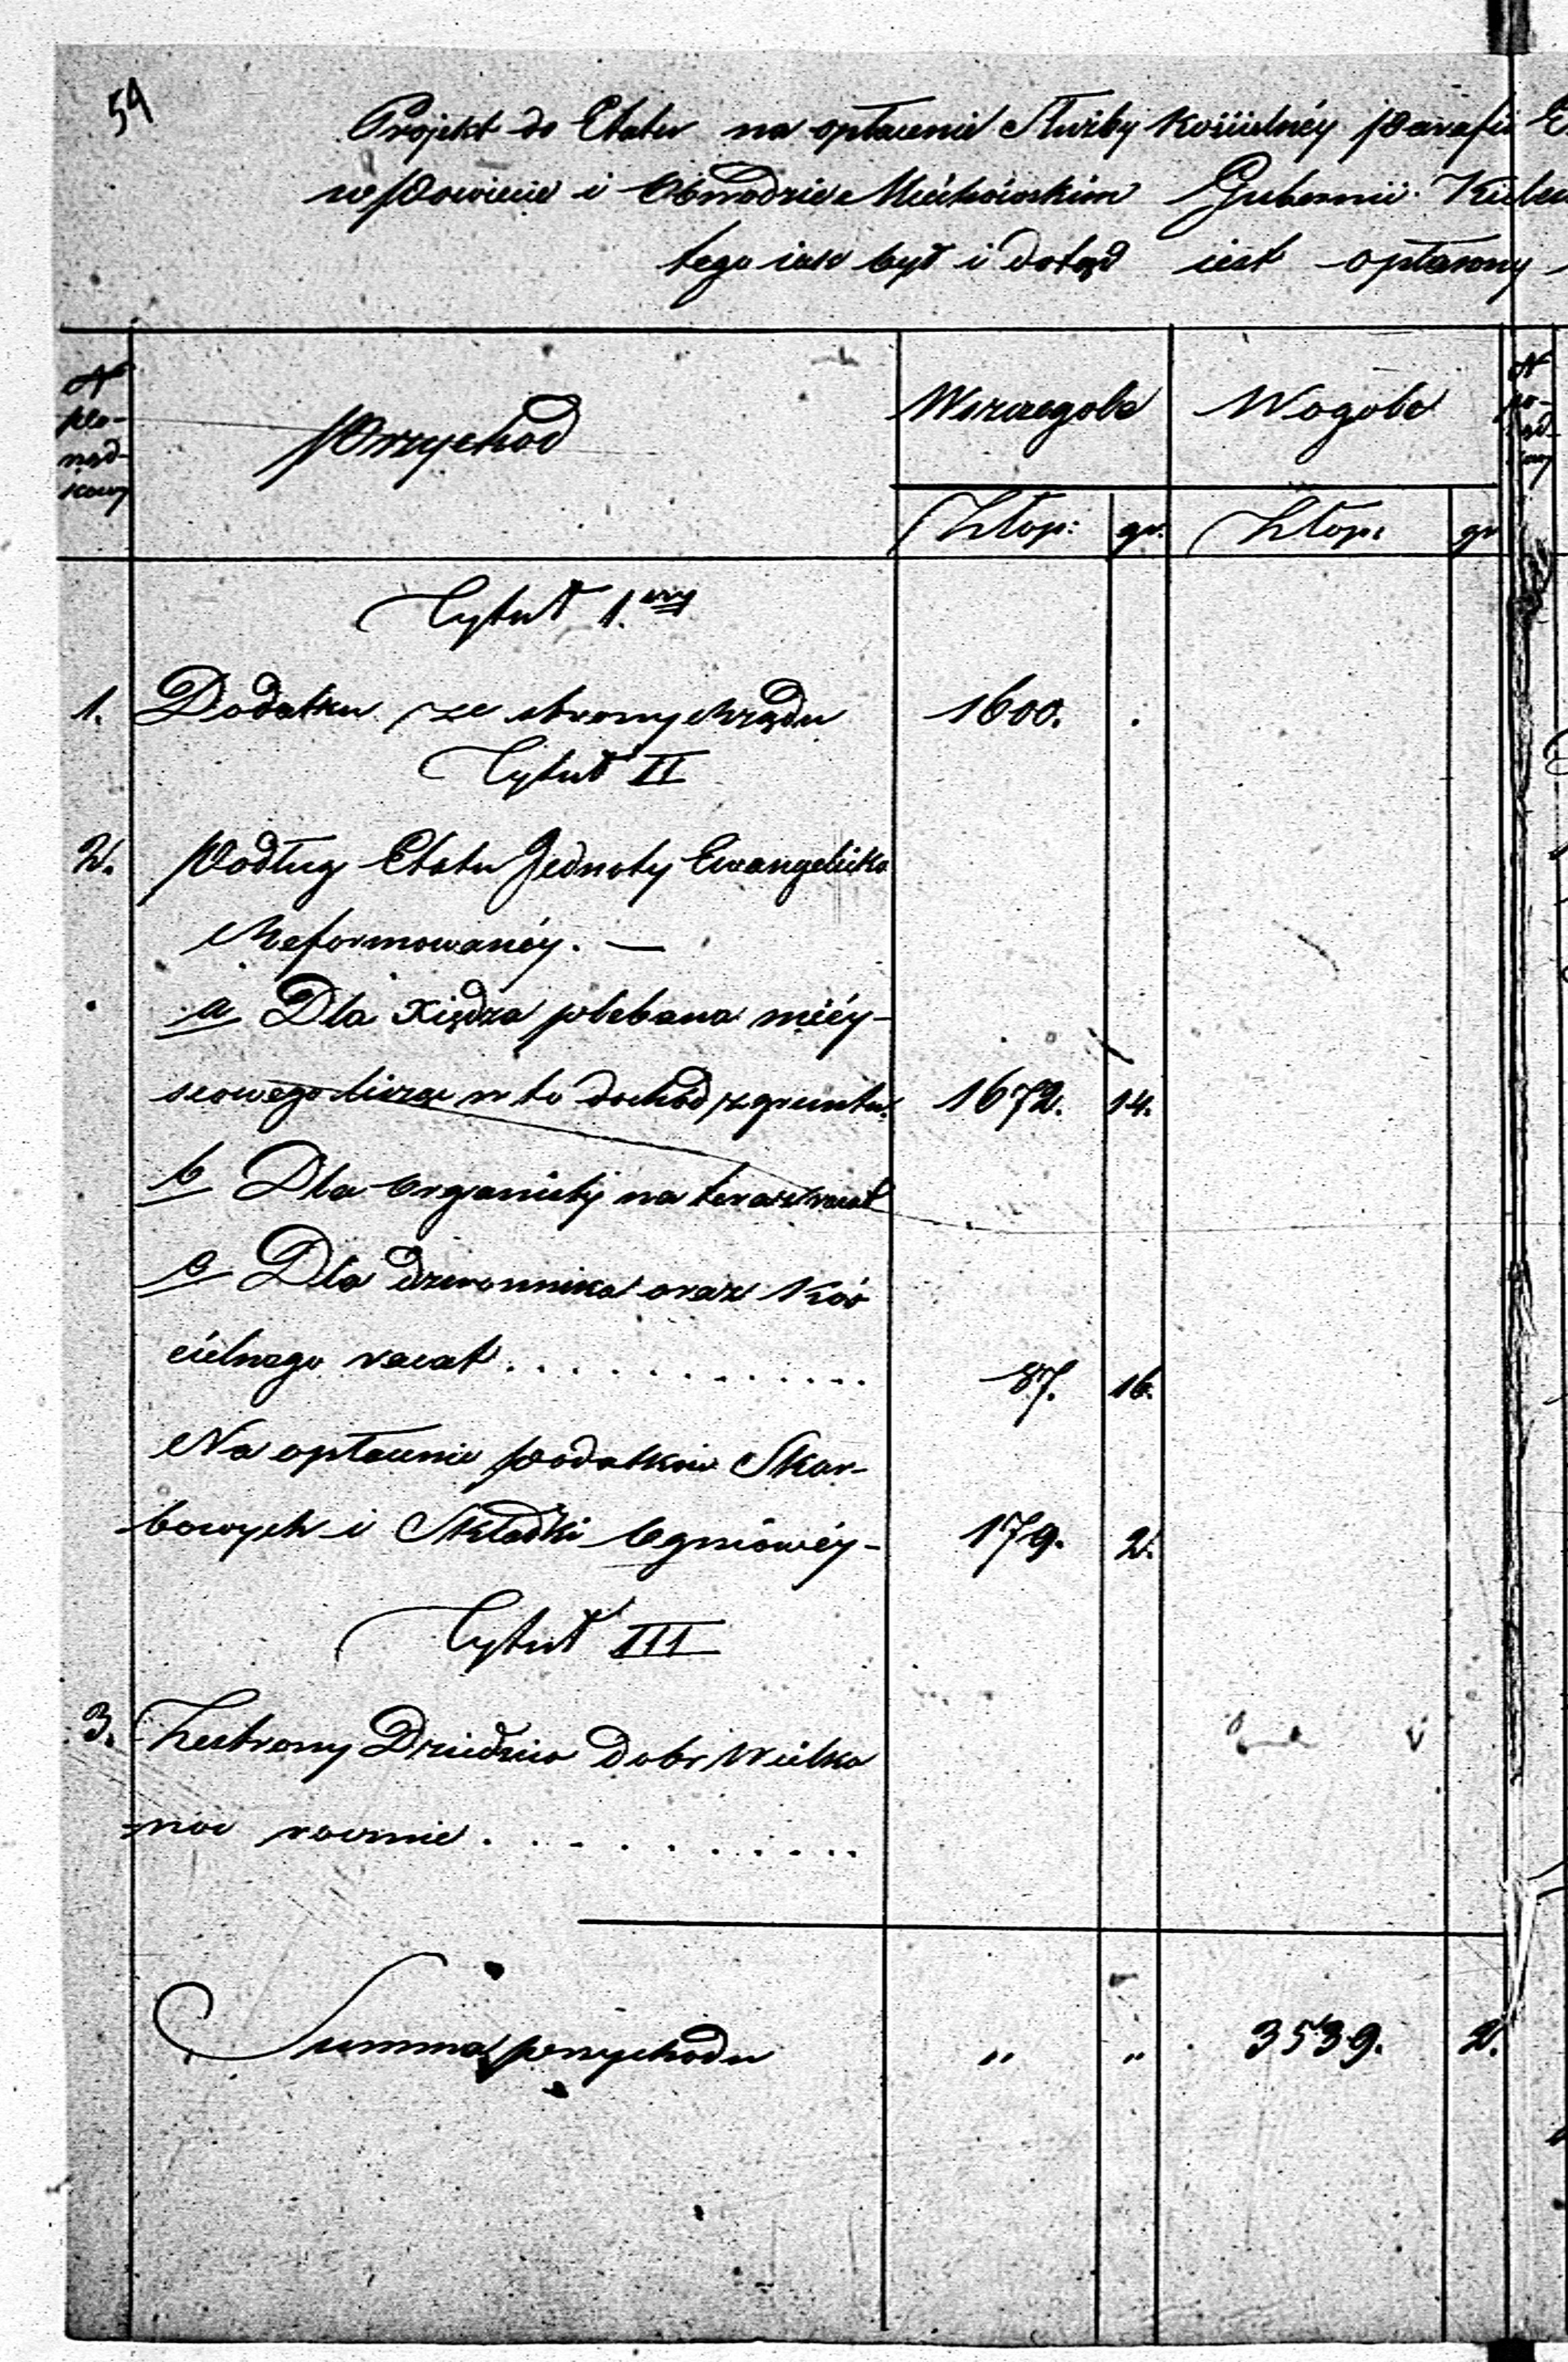 54
Projekt do Etatu na opłacenie Służby Kościelnéy Parafii E
w Powiecie i Obwodzie Miéchówskim Gubernii Kiele
tego iak był i dotąd iest opłacony
N porządkowy
Przychod
Wszczegole
Wogole
N porządkowy
Złop: gr. Złop: gr
Tytuł 1.wszy
1. Dodatku ze strony Rządu 1600. .
Tytuł II
2. Podług Etatu Jednoty Ewangelicko
Reformowanéy. —
a Dla Xiędza plebana mièy-
scowego licząc w to dochód z gruntu. 1672. 14.
b Dla Organisty na teraz vacat
c Dla dzwonnika oraz Koś
cielnego vacat . . . . . . . . . . . . 87. 16.
Na opłacenie podatków Skar-
bowych i Składki Ogniowéy- 179. 2.
Tytuł III
3. Ze strony Dziedzica Dobr Wielka
=noc rocznie . . . . . . . . . .
Summa przychodu " " 3539. 2.